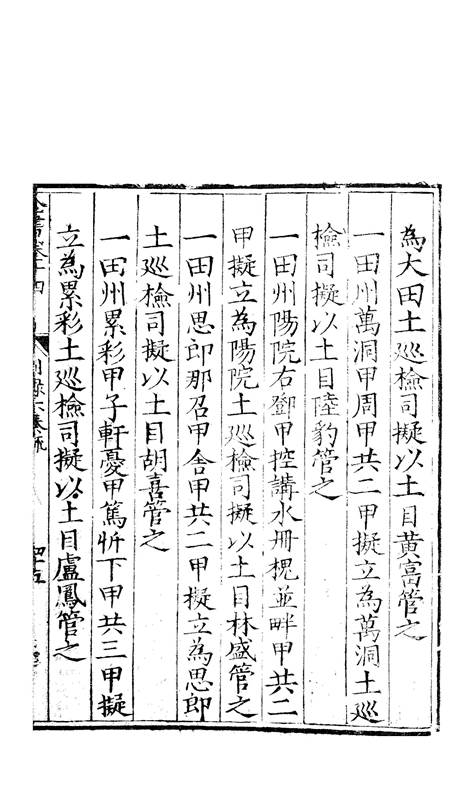 為大田土巡檢司擬以土目黃富管之
一田州萬洞甲周甲共二甲擬立為萬洞土巡
檢司擬以土目陸豹管之
一田州陽院右鄧甲控講水冊槐並畔甲共二
甲擬立為陽院土巡檢司擬以土目林盛管之
一田州思郎那召甲舍甲共二甲擬立為思郎
土巡檢司擬以土目胡喜管之
一田州累彩甲子軒憂甲篤忻下甲共三甲擬
立為累彩土巡檢司擬以土目盧鳳管之
全書卷十四
四十五